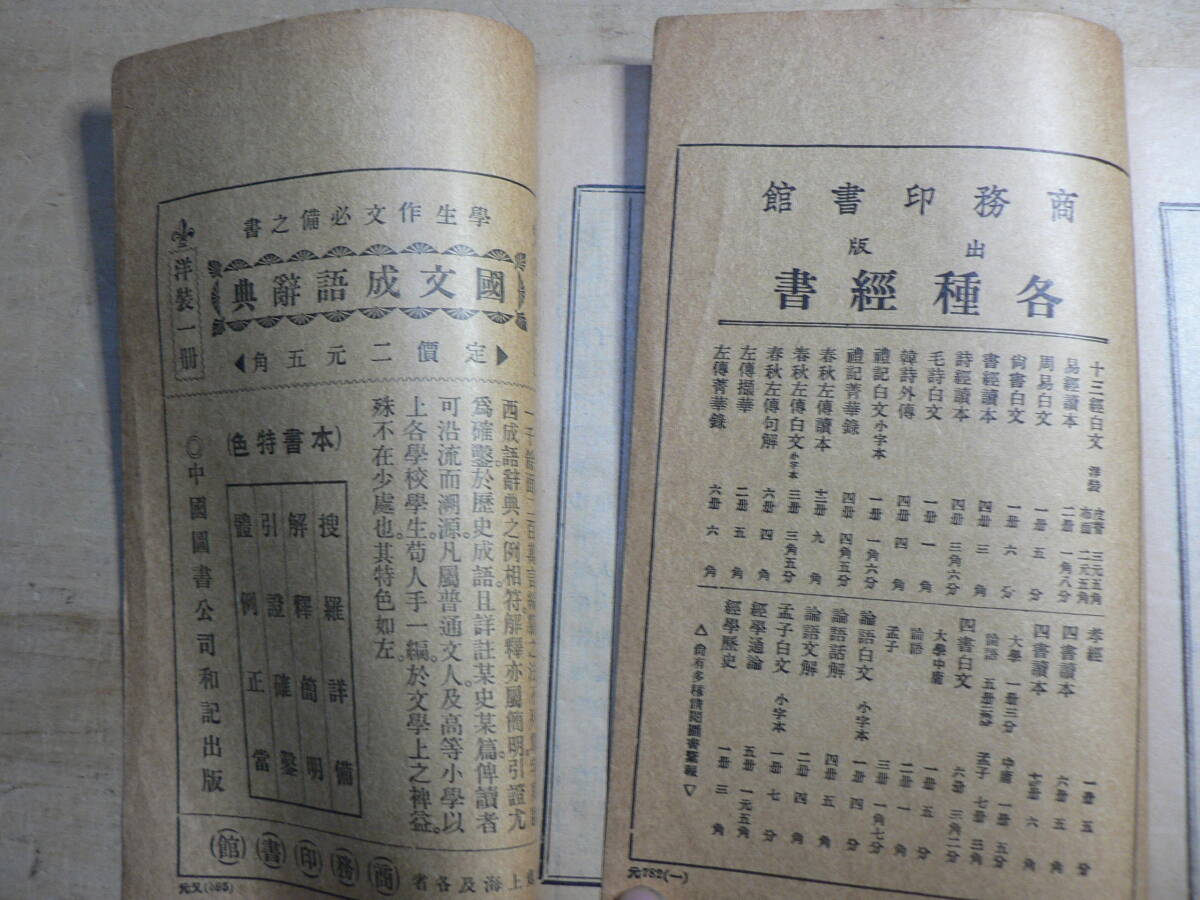 商務印書館
出版
各種經書
十三經白文 洋裝 布面 三元五角 二元五角
易經讀本 二冊 一角八分
周易白文 一冊 五分
尙書白文 一冊 六分
書經讀本 四冊 三角
詩經讀本 四冊 三角六分
毛詩白文 一冊 一角
韓詩外傳 四冊 四角
禮記白文 小字本 一冊 一角六分
禮記菁華錄 四冊 四角五分
春秋左傳讀本 十二冊 九角
春秋左傳白文 小字本 三冊 三角五分
春秋左傳句解 六冊 四角
左傳擷華 二冊 五角
左傳菁華錄 六冊 六角
孝經 一冊 五分
四書讀本 六冊 五角
四書讀本 六角
大學 一冊三分 中庸 一冊五分
論語 五冊 孟子 七冊三角
四書白文 六冊 三角二分
大學中庸 一冊 五分
論語 二冊 一角
孟子 三冊 一角七分
論語白文 小字本 一冊 四分
論語話解 四冊 五角
論語文解 二冊 四角
孟子白文 小字本 一冊 七分
經學通論 五冊 一元五角
經學歷史 一冊 三角
△尙有多種請閱圖書彙報▽
元782(一)
學生作文必備之書
國文成語辭典
定價二元五角
洋裝一册
西成語辭典之例相符。解釋亦屬簡明。引證尤
爲確鑿。於歷史成語。且詳註某史某篇。俾讀者
可沿流而溯源。凡屬普通文人。及高等小學以
上各學校學生。苟人手一編。於文學上之裨益。
殊不在少處也。其特色如左。
(本書特色)
搜羅詳備
解釋簡明
引證確鑿
體例正當
◎中國圖書公司和記出版
上海及各省
商務印書館